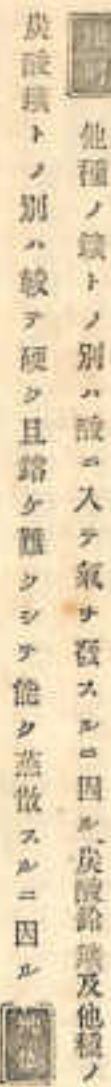 他種ノ鑛トノ別ハ酸ニ入テ氣ヲ發スルニ因ル、炭酸鉛鑛及他種ノ
炭酸鑛トノ別ハ較テ硬ク且鎔ケ難クシテ能ク蒸散スルニ因ル